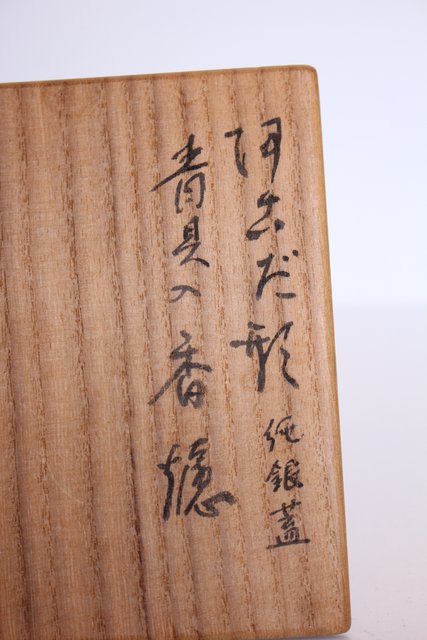 阿古だ形 純銀蓋
青貝の香爐